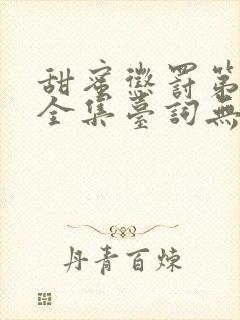 甜蜜懲罰第
全集臺詞無
丹青百煉